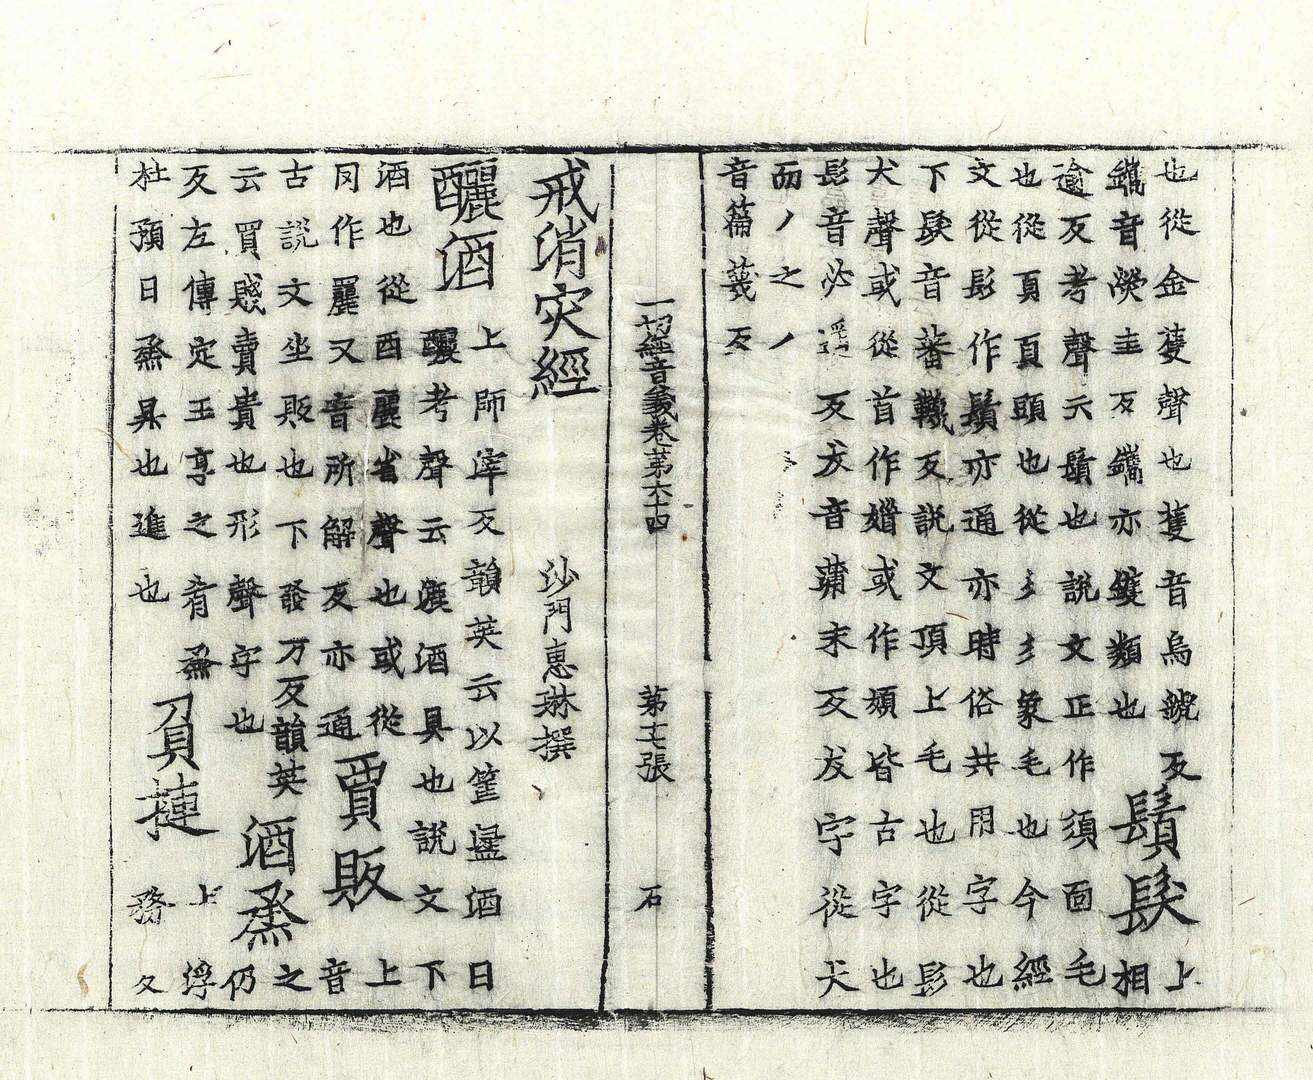 也從金蒦聲也蒦音烏虢反
鑴音攜圭反鑴亦鑊類也
鬚髮
上相
逾反考聲云鬚也說文正作須面毛
也從頁頁頭也從彡彡象毛也今經
文從髟作鬚亦通亦時俗共用字也
下髮音蕃韈反說文頂上毛也從髟
犬聲或從首作𩠙或作頞皆古字也
髟音必遥反犮音蒲末反犮字從犬
而丿之丿
音篇蔑反
一切經音義卷第六十四 第十七張 石
戒消灾經 沙門惠琳撰
釃酒
上師滓反韻英云以筐盪酒曰
釃考聲云漉酒具也說文下
酒也從酉麗省聲也或從
同作麗又音所解反亦通
賈販
上音
古說文坐販也下發万反韻英
云買賤賣貴也形聲字也
酒烝
之仍
反左傳定王享之肴烝
杜預曰烝具也進也
負揵
上浮
務久